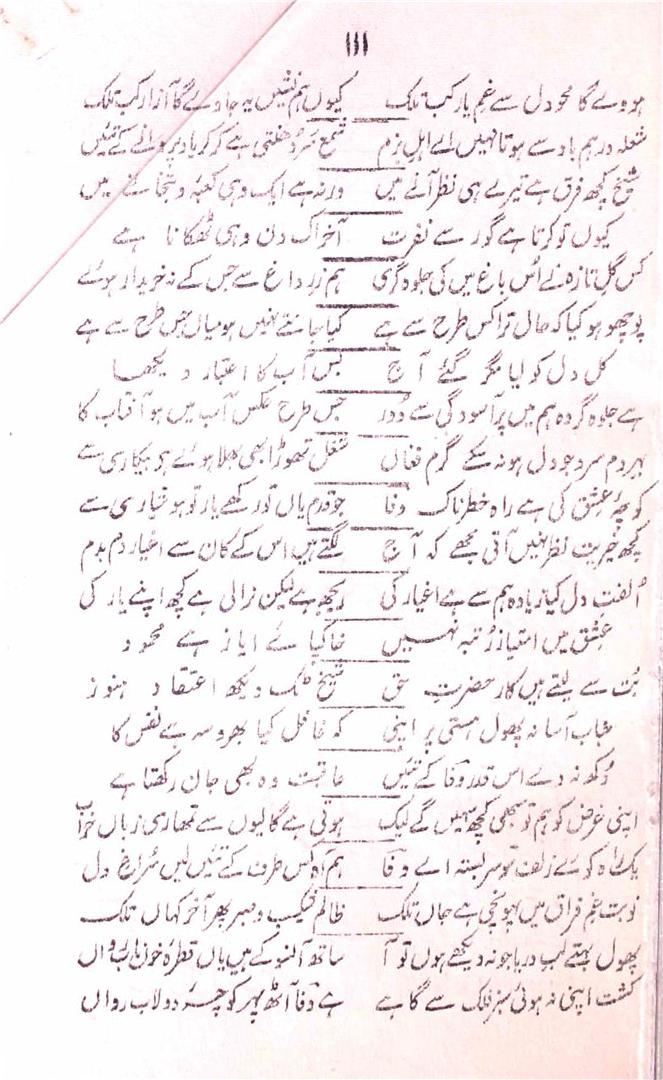 ۱۱۱
ہووے گا محو دل سے غم یار کب تلک کیوں ہم نشیں یہ جاوے گا آزار کب تلک
شعلہ درہم باد سے ہوتا نہیں اے اہل بزم شمع سر دھنتی ہے کر کر یاد پروانے کے تئیں
شیخ کچھ فرق ہے تیرے ہی نظر آنے میں ورنہ ہے ایک وہی کعبہ و بتخانے میں
کیوں تو کرتا ہے گور سے نفرت آخر اک دن وہی ٹھکانا ہے
کس گل تازہ نے اس باغ میں کی جلوہ گری ہم زر داغ سے جس کے نہ خریدار ہوئے
پوچھو ہو کیا کہ حال ترا کس طرح سے ہے کیا جانتے نہیں ہو میاں جس طرح سے ہے
کل دل کو لیا مگر گئے آج بس آپ کا اعتبار دیکھا
ہے جلوہ گر وہ ہم میں پر آلودگی سے دور جس طرح عکس آب میں ہو آفتاب کا
ہر دم سرد جو دل ہو نہ سکے گرم فغاں شغل تھوڑا بھی بھلا ہوئے ہے بیکاری سے
کوچۂ عشق کی ہے راہ خطرناک وفا جو قدم یاں تو رکھے یار تو ہوشیاری سے
کچھ خیریت نظر نہیں آتی مجھے کہ آج لگتے ہیں اس کے کان سے اغیار دم بدم
الفت دل کیا زیادہ ہم سے ہے اغیار کی ریجھ ہے لیکن نرالی ہے کچھ اپنے یار کی
عشق میں امتیاز رتبہ نہیں خاکپائے ایاز ہے محمود
بت سے لیتے ہیں کار حضرت حق شیخ ٹک دیکھ اعتقاد ہنوز
حباب آسا نہ پھول ہستی پر اپنی کہ غافل کیا بھروسہ ہے نفس کا
دکھ نہ دے اس قدر وفا کے تئیں عاقبت وہ بھی جان رکھتا ہے
اپنی غرض کو ہم تو سبھی کچھ سہیں گے لیک ہوتی ہے گالیوں سے تمھاری زباں خراب
یک راہ کوئے زلف تو سربستہ اے وفا ہم آہ کس طرف کے تئیں لیں سراغ دل
نوبت غم فراق میں پہونچی ہے جاں تلک ظالم شکیب و صبر پھر آخر کہاں تلک
پھول بہتے لب دریا جو نہ دیکھے ہوں تو آ ساتھ آنسو کے ہیں یاں قطرۂ خوں ناب رواں
کشت اپنی نہ ہوئی سبز فلک سے گاہے ہے وفا آٹھ پہر گو چہ دولاب رواں